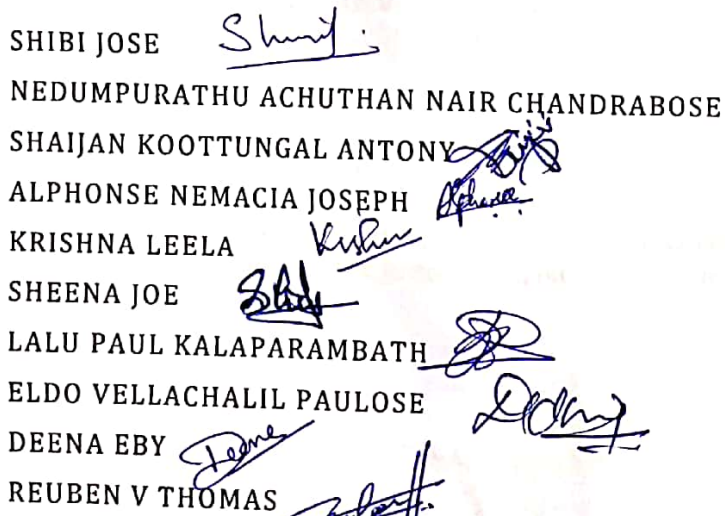 SHIBI JOSE
NEDUMPURATHU ACHUTHAN NAIR CHANDRABOSE
SHAIJAN KOOTTUNGAL ANTONY
ALPHONSE NEMACIA JOSEPH
KRISHNA LEELA
SHEENA JOE
LALU PAUL KALAPARAMBATH
ELDO VELLACHALIL PAULOSE
DEENA EBY Deena
REUBEN V THOMAS